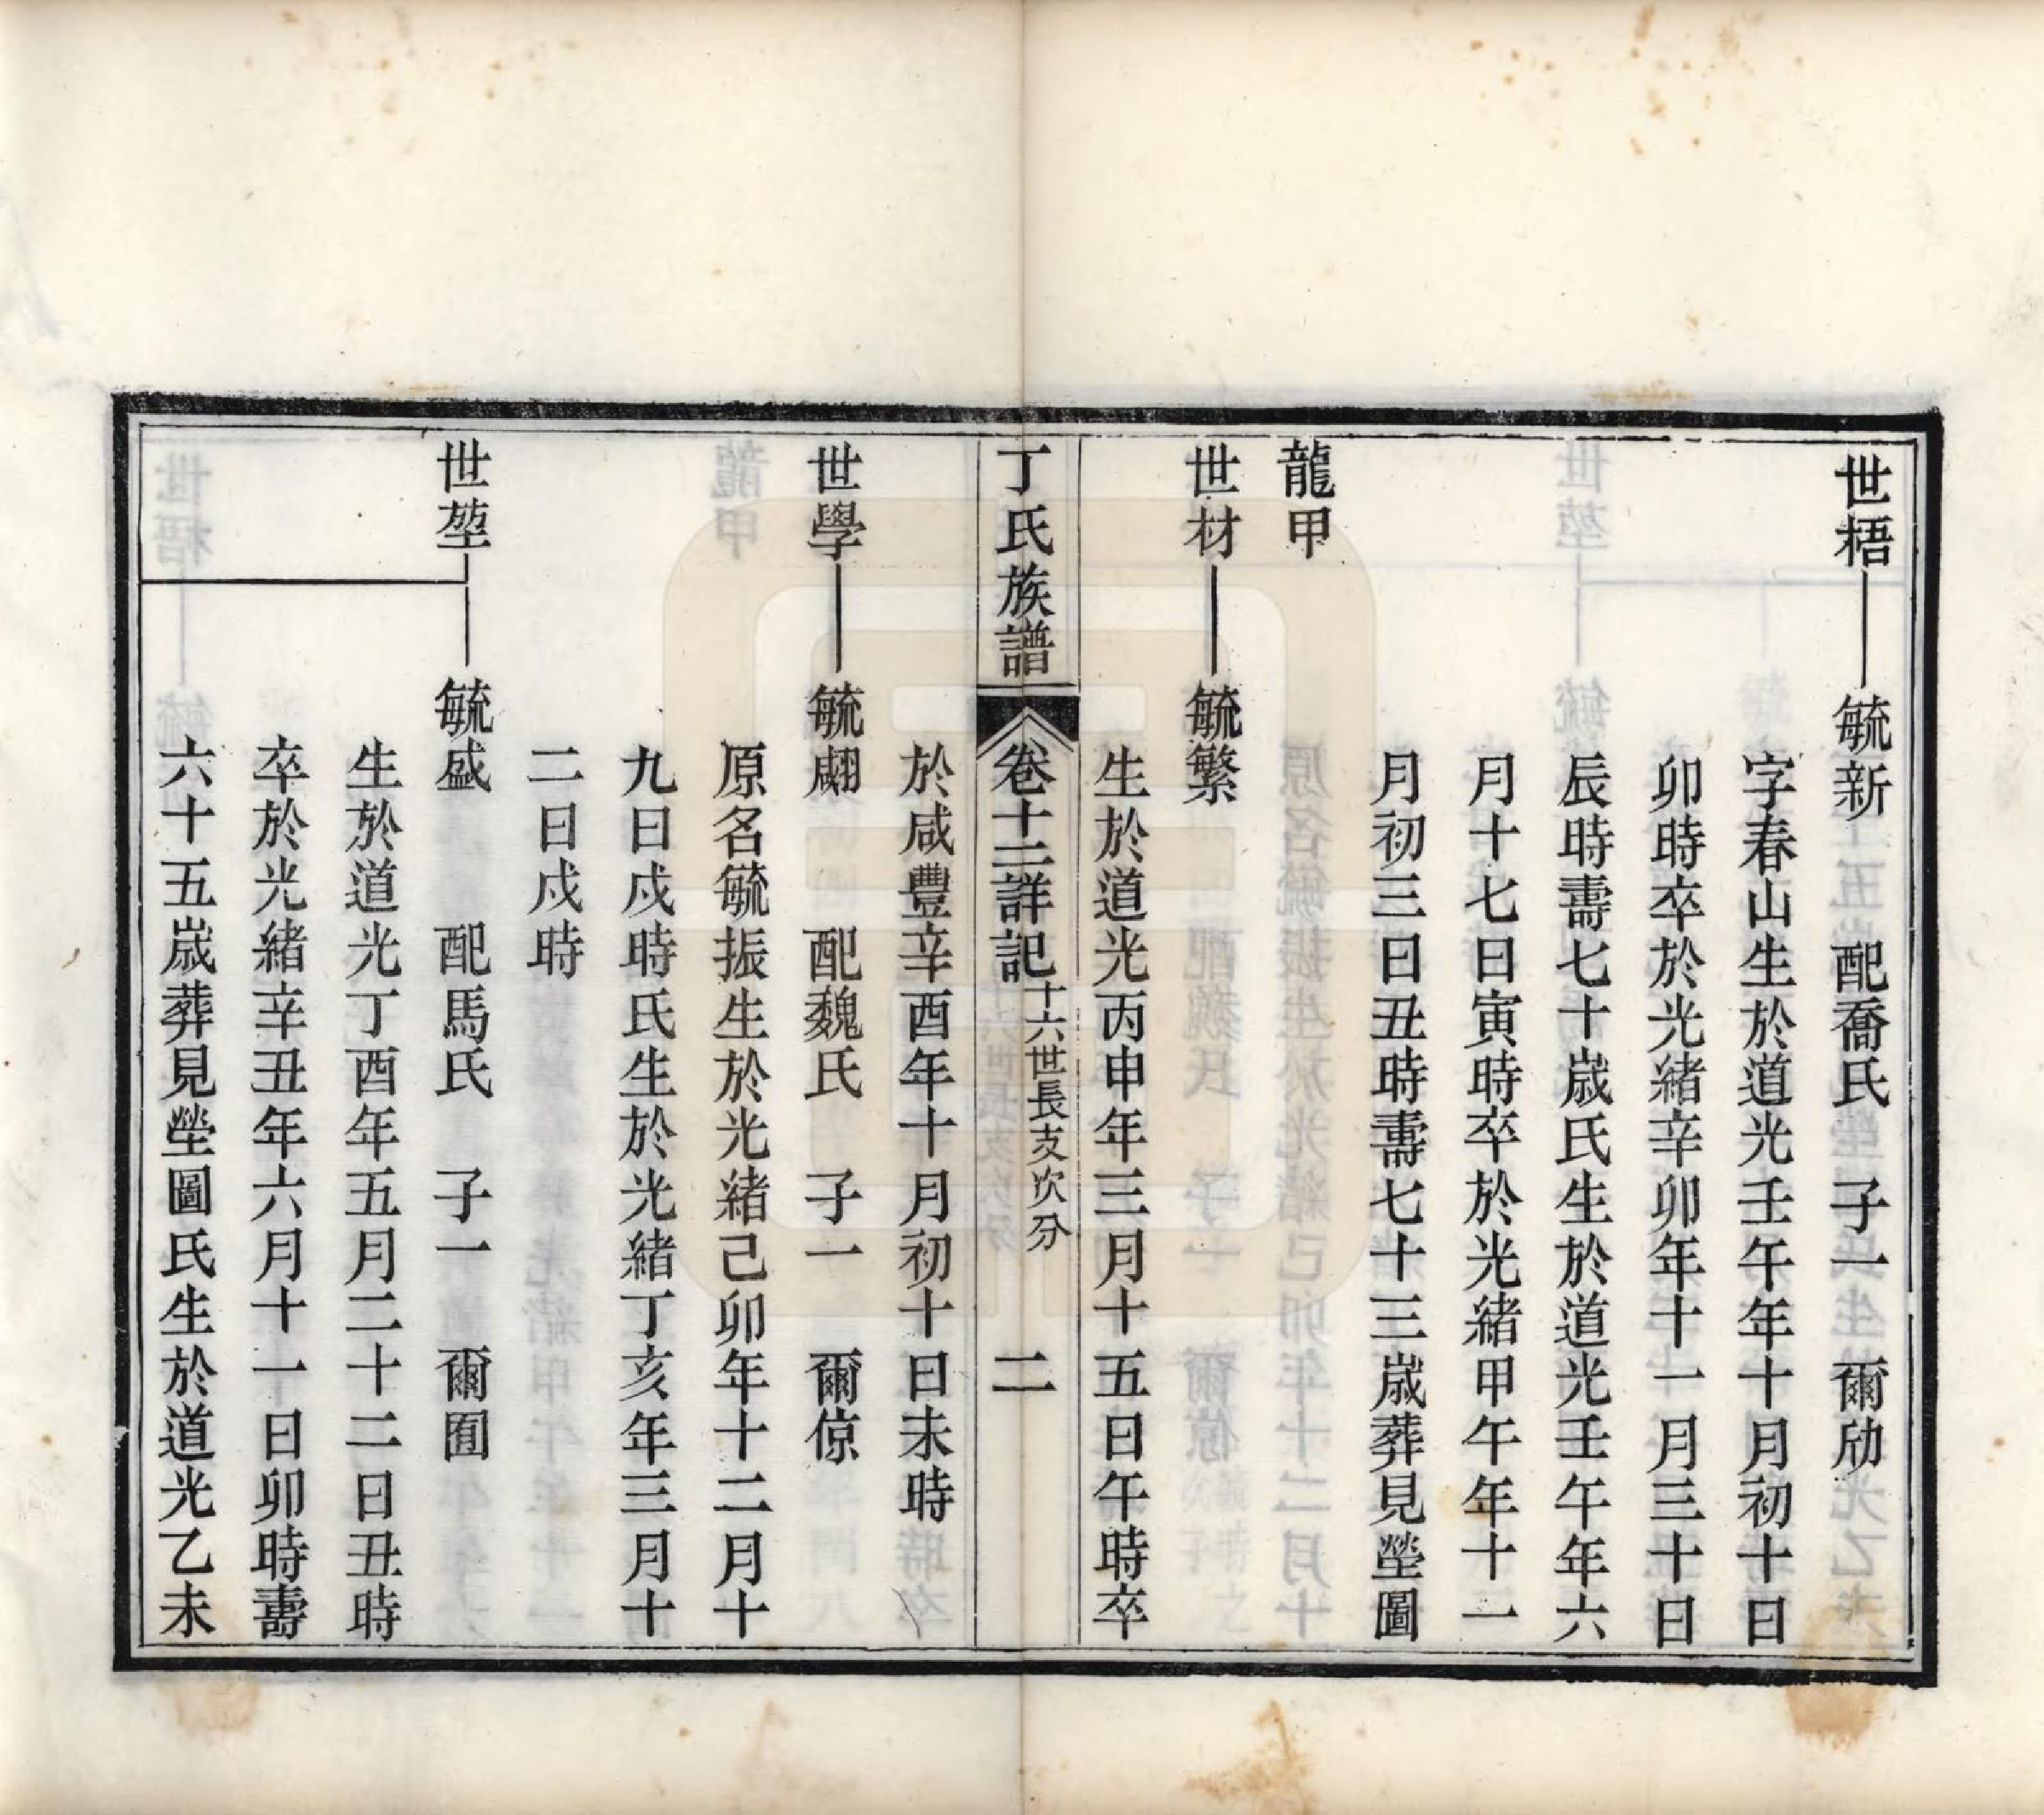 世梧 毓新 配喬氏 子一 爾劤
字春山生於道光壬午年十月初十日
卯時卒於光緒辛卯年十一月三十日
辰時壽七十歲氏生於道光壬午年六
月十七日寅時卒於光緒甲午年十一
月初三日丑時壽七十三歲葬見塋圖
龍甲
世材 毓繁
生於道光丙申年三月十五日午時卒
丁氏族譜 卷十二詳記 十六世長支次分 二
於咸豐辛酉年十月初十日未時
世學 毓翽 配魏氏 子一 爾倞
原名毓振生於光緒己卯年十二月十
九日戍時氏生於光緒丁亥年三月十
二日戍時
世堃 毓盛 配馬氏 子一 爾囿
生於道光丁酉年五月二十二日丑時
卒於光緒辛丑年六月十一日卯時壽
六十五歲葬見塋圖氏生於道光乙未